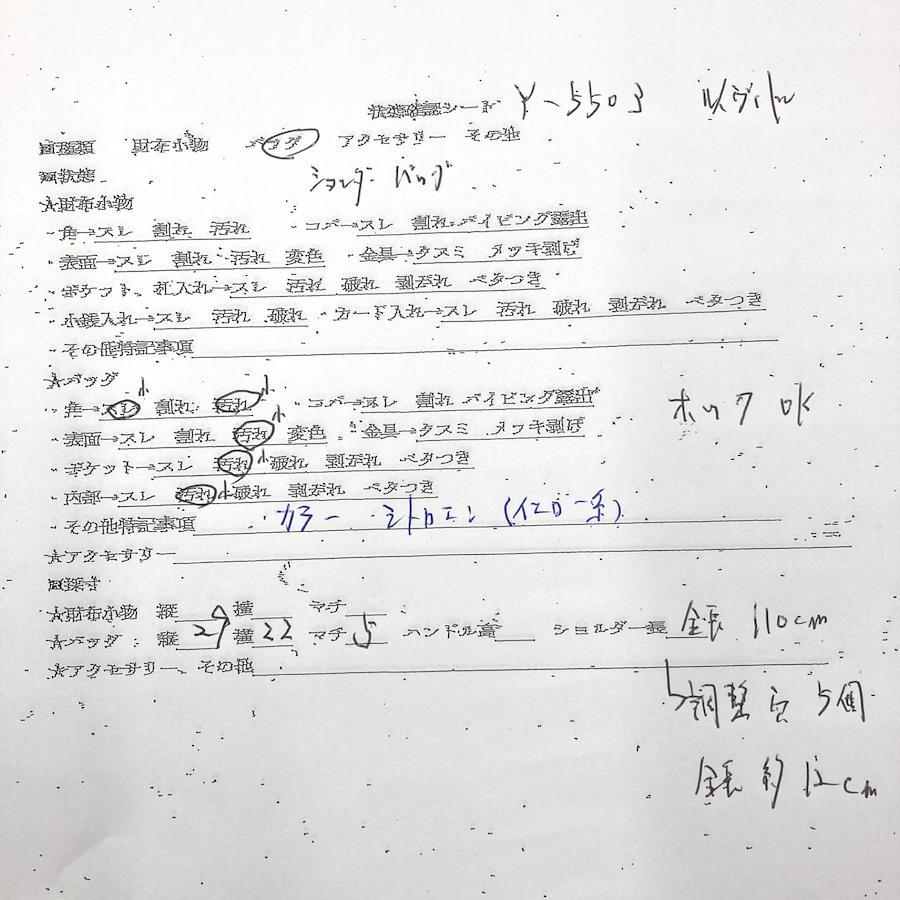 状態確認シート Y-5503 ルイヴィトン
□種類 財布小物 バッグ アクセサリー その他
□状態 ショルダーバッグ
★財布小物
・角→スレ 割れ 汚れ ・コバ→スレ 割れ パイピング露出
・表面→スレ 割れ 汚れ 変色 ・金具→クスミ メッキ剥げ
・ポケット、札入れ→スレ 汚れ 破れ 剥がれ ベタつき
・小銭入れ→スレ 汚れ 破れ ・カード入れ→スレ 汚れ 破れ 剥がれ ベタつき
・その他特記事項
★バッグ
・角→スレ小 割れ 汚れ小 ・コバ→スレ 割れ パイピング露出 ホック OK
・表面→スレ 割れ 汚れ小 変色 ・金具→クスミ メッキ剥げ
・ポケット→スレ 汚れ小 破れ 剥がれ ベタつき
・内部→スレ 汚れ小 破れ 剥がれ ベタつき
・その他特記事項 カラー シトロエン(イエロー系)
★アクセサリー
□採寸
★財布小物 縦 横 マチ
★バッグ 縦 29 横 22 マチ 5 ハンドル高 ショルダー長 全長 110cm
★アクセサリー、その他
調整穴 5個
全長 約 12cm